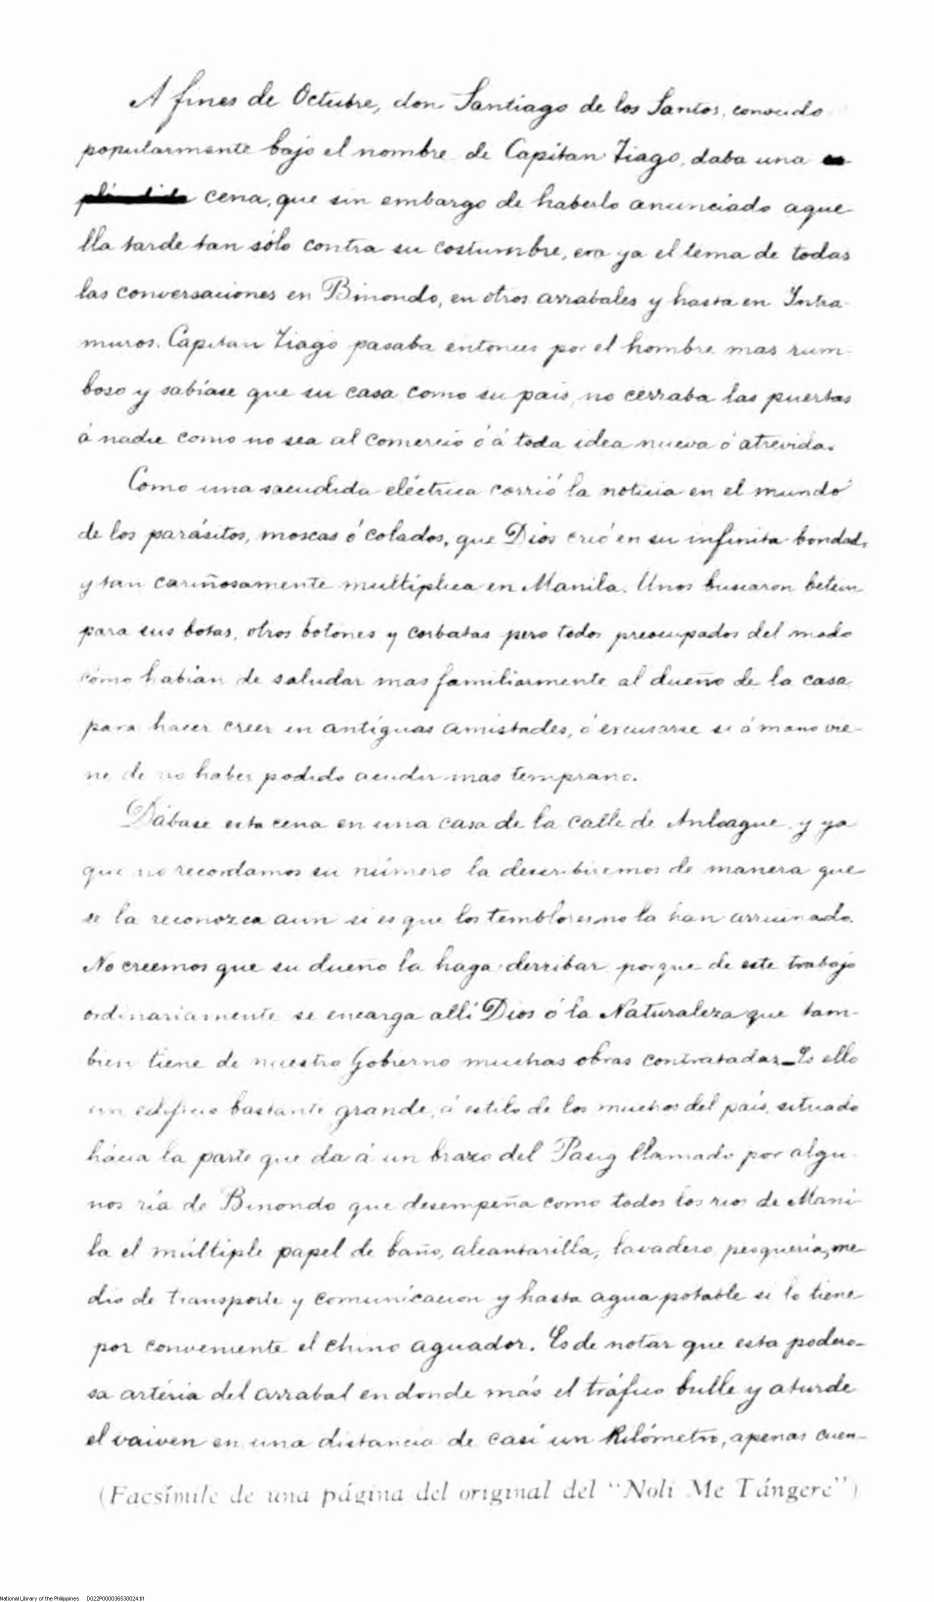 A fines de Octubre, don Santiago de los Santos, conocido
popularmente bajo el nombre de Capitan Tiago, daba una
cena, que sin embargo de haberlo anunciado aque-
lla tarde tan sólo contra su costumbre, era ya el tema de todas
las conversaciones en Binondo, en otros arrabales y hasta en Intra-
muros. Capitan Tiago pasaba entonces por el hombre mas rum-
boso y sabíase que su casa como su pais, no cerraba las puertas
á nadie como no sea al comercio ó á toda idea nueva ó atrevida.
Como una sacudida eléctrica corrió la noticia en el mundo
de los parásitos, moscas ó colados, que Dios crió en su infinita bondad,
y tan cariñosamente multiplica en Manila. Unos buscaron betun
para sus botas, otros botones y corbatas pero todos preocupados del modo
cómo habian de saludar mas familiarmente al dueño de la casa,
para hacer creer en antíguas amistades, ó excusarse si á mano vie-
ne de no haber podido acudir mas temprano.
Dábase esta cena en una casa de la calle de Anloague, y ya
que no recordamos su número la describiremos de manera que
se la reconozca aun si es que los temblores no la han arruinado.
No creemos que su dueño la haga derribar porque de este trabajo
ordinariamente se encarga allí Dios ó la Naturaleza que tam-
bien tiene de nuestro Gobierno muchas obras contratadas_Es ello
un edificio bastante grande, á estilo de los muchos del país, situado
hácia la parte que da á un brazo del Pasig llamado por algu-
nos ria de Binondo que desempeña como todos los rios de Mani-
la el múltiple papel de baño, alcantarilla, lavadero, pesquería, me-
dio de transporte y comunicacion y hasta agua potable si lo tiene
por conveniente el chino aguador. Es de notar que esta podero-
sa artéria del arrabal en donde más el tráfico bulle y aturde
el vaiven en una distancia de casi un Kilómetro, apenas cuen-
(Facsímile de una página del original del "Noli Me Tángere")
National Library of the Philippines D022P000036530024.tif